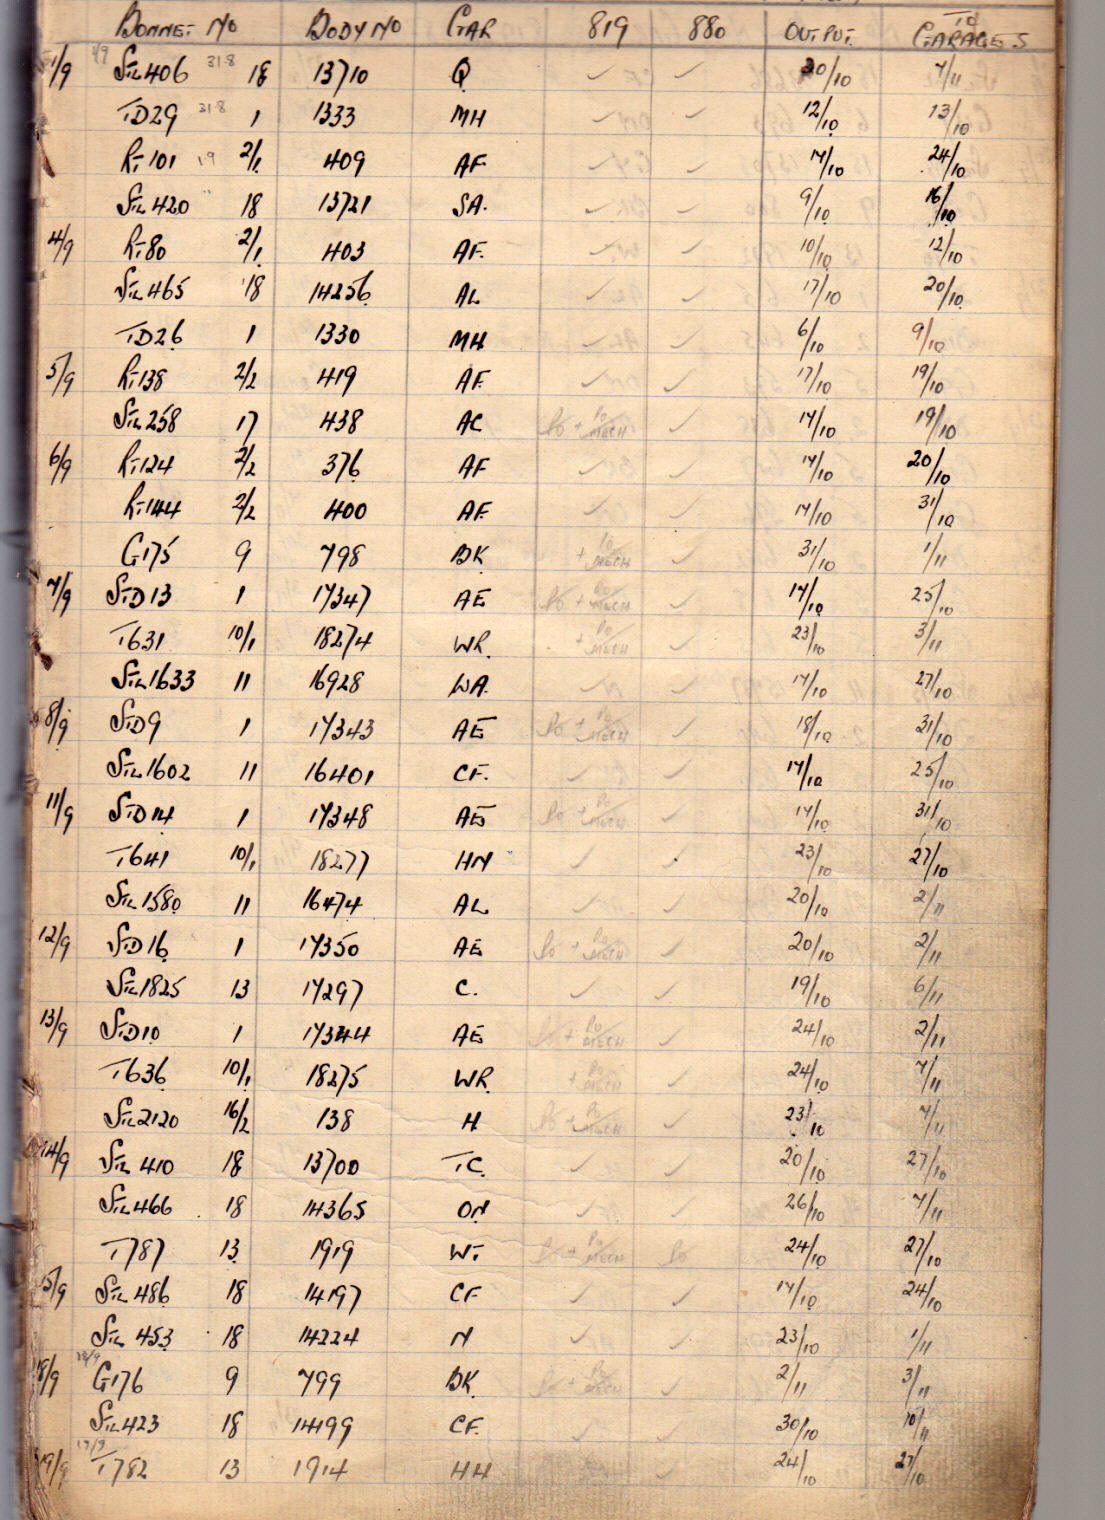 BONNET NO BODY NO GAR 819 880 OUTPUT TO GARAGES
1/9 1/9 STL 406 31.8 18 13710 Q ✓ ✓ 30/10 7/11
TD29 31.8 1 1333 MH ✓ ✓ 12/10 13/10
RT 101 1.9 2/1 409 AF ✓ ✓ 17/10 24/10
STL 420 18 13721 SA. ✓ ✓ 9/10 16/10
4/9 RT 80 2/1 403 AF. ✓ ✓ 10/10 12/10
STL 465 18 14256 AL ✓ ✓ 17/10 20/10
TD26 1 1330 MH ✓ ✓ 6/10 9/10
5/9 RT 138 2/2 419 AF ✓ ✓ 17/10 19/10
STL 258 17 438 AC Po + Po/MECH ✓ 17/10 19/10
6/9 RT 124 2/2 376 AF ✓ ✓ 17/10 20/10
RT 144 2/2 400 AF. ✓ ✓ 17/10 31/10
G175 9 798 BK + Po/MECH ✓ 31/10 1/11
7/9 STD 13 1 17347 AE Po + Po/MECH ✓ 17/10 25/10
T631 10/1 18274 WR. + Po/MECH ✓ 23/10 3/11
STL 1633 11 16928 WA. ✓ ✓ 17/10 27/10
8/9 STD 9 1 17343 AE Po + Po/MECH ✓ 18/10 31/10
STL 1602 11 16401 CF. ✓ ✓ 17/10 25/10
11/9 STD 14 1 17348 AE Po + Po/MECH ✓ 17/10 31/10
T641 10/1 18277 HN ✓ ✓ 23/10 27/10
STL 1580 11 16474 AL ✓ ✓ 20/10 2/11
12/9 STD 16 1 17350 AE Po + Po/MECH ✓ 20/10 2/11
STL 1825 13 17297 C. ✓ ✓ 19/10 6/11
13/9 STD 10 1 17344 AE Po + Po/MECH ✓ 24/10 2/11
T636 10/1 18275 WR. + Po/MECH ✓ 24/10 7/11
STL 2120 16/2 138 H Po + Po/MECH ✓ 23/10 7/11
14/9 STL 410 18 13700 TC. ✓ ✓ 20/10 27/10
STL 466 18 14365 ON ✓ ✓ 26/10 7/11
T787 13 1919 WT Po + Po/MECH Po 24/10 27/10
15/9 STL 486 18 14197 CF ✓ ✓ 17/10 24/10
STL 453 18 14224 N ✓ ✓ 23/10 1/11
18/9 G176 9 799 BK. Po + Po/MECH ✓ 2/11 3/11
STL 423 18 14199 CF. ✓ ✓ 30/10 10/11
19/9 T782 13 1914 HH ✓ 24/10 27/10